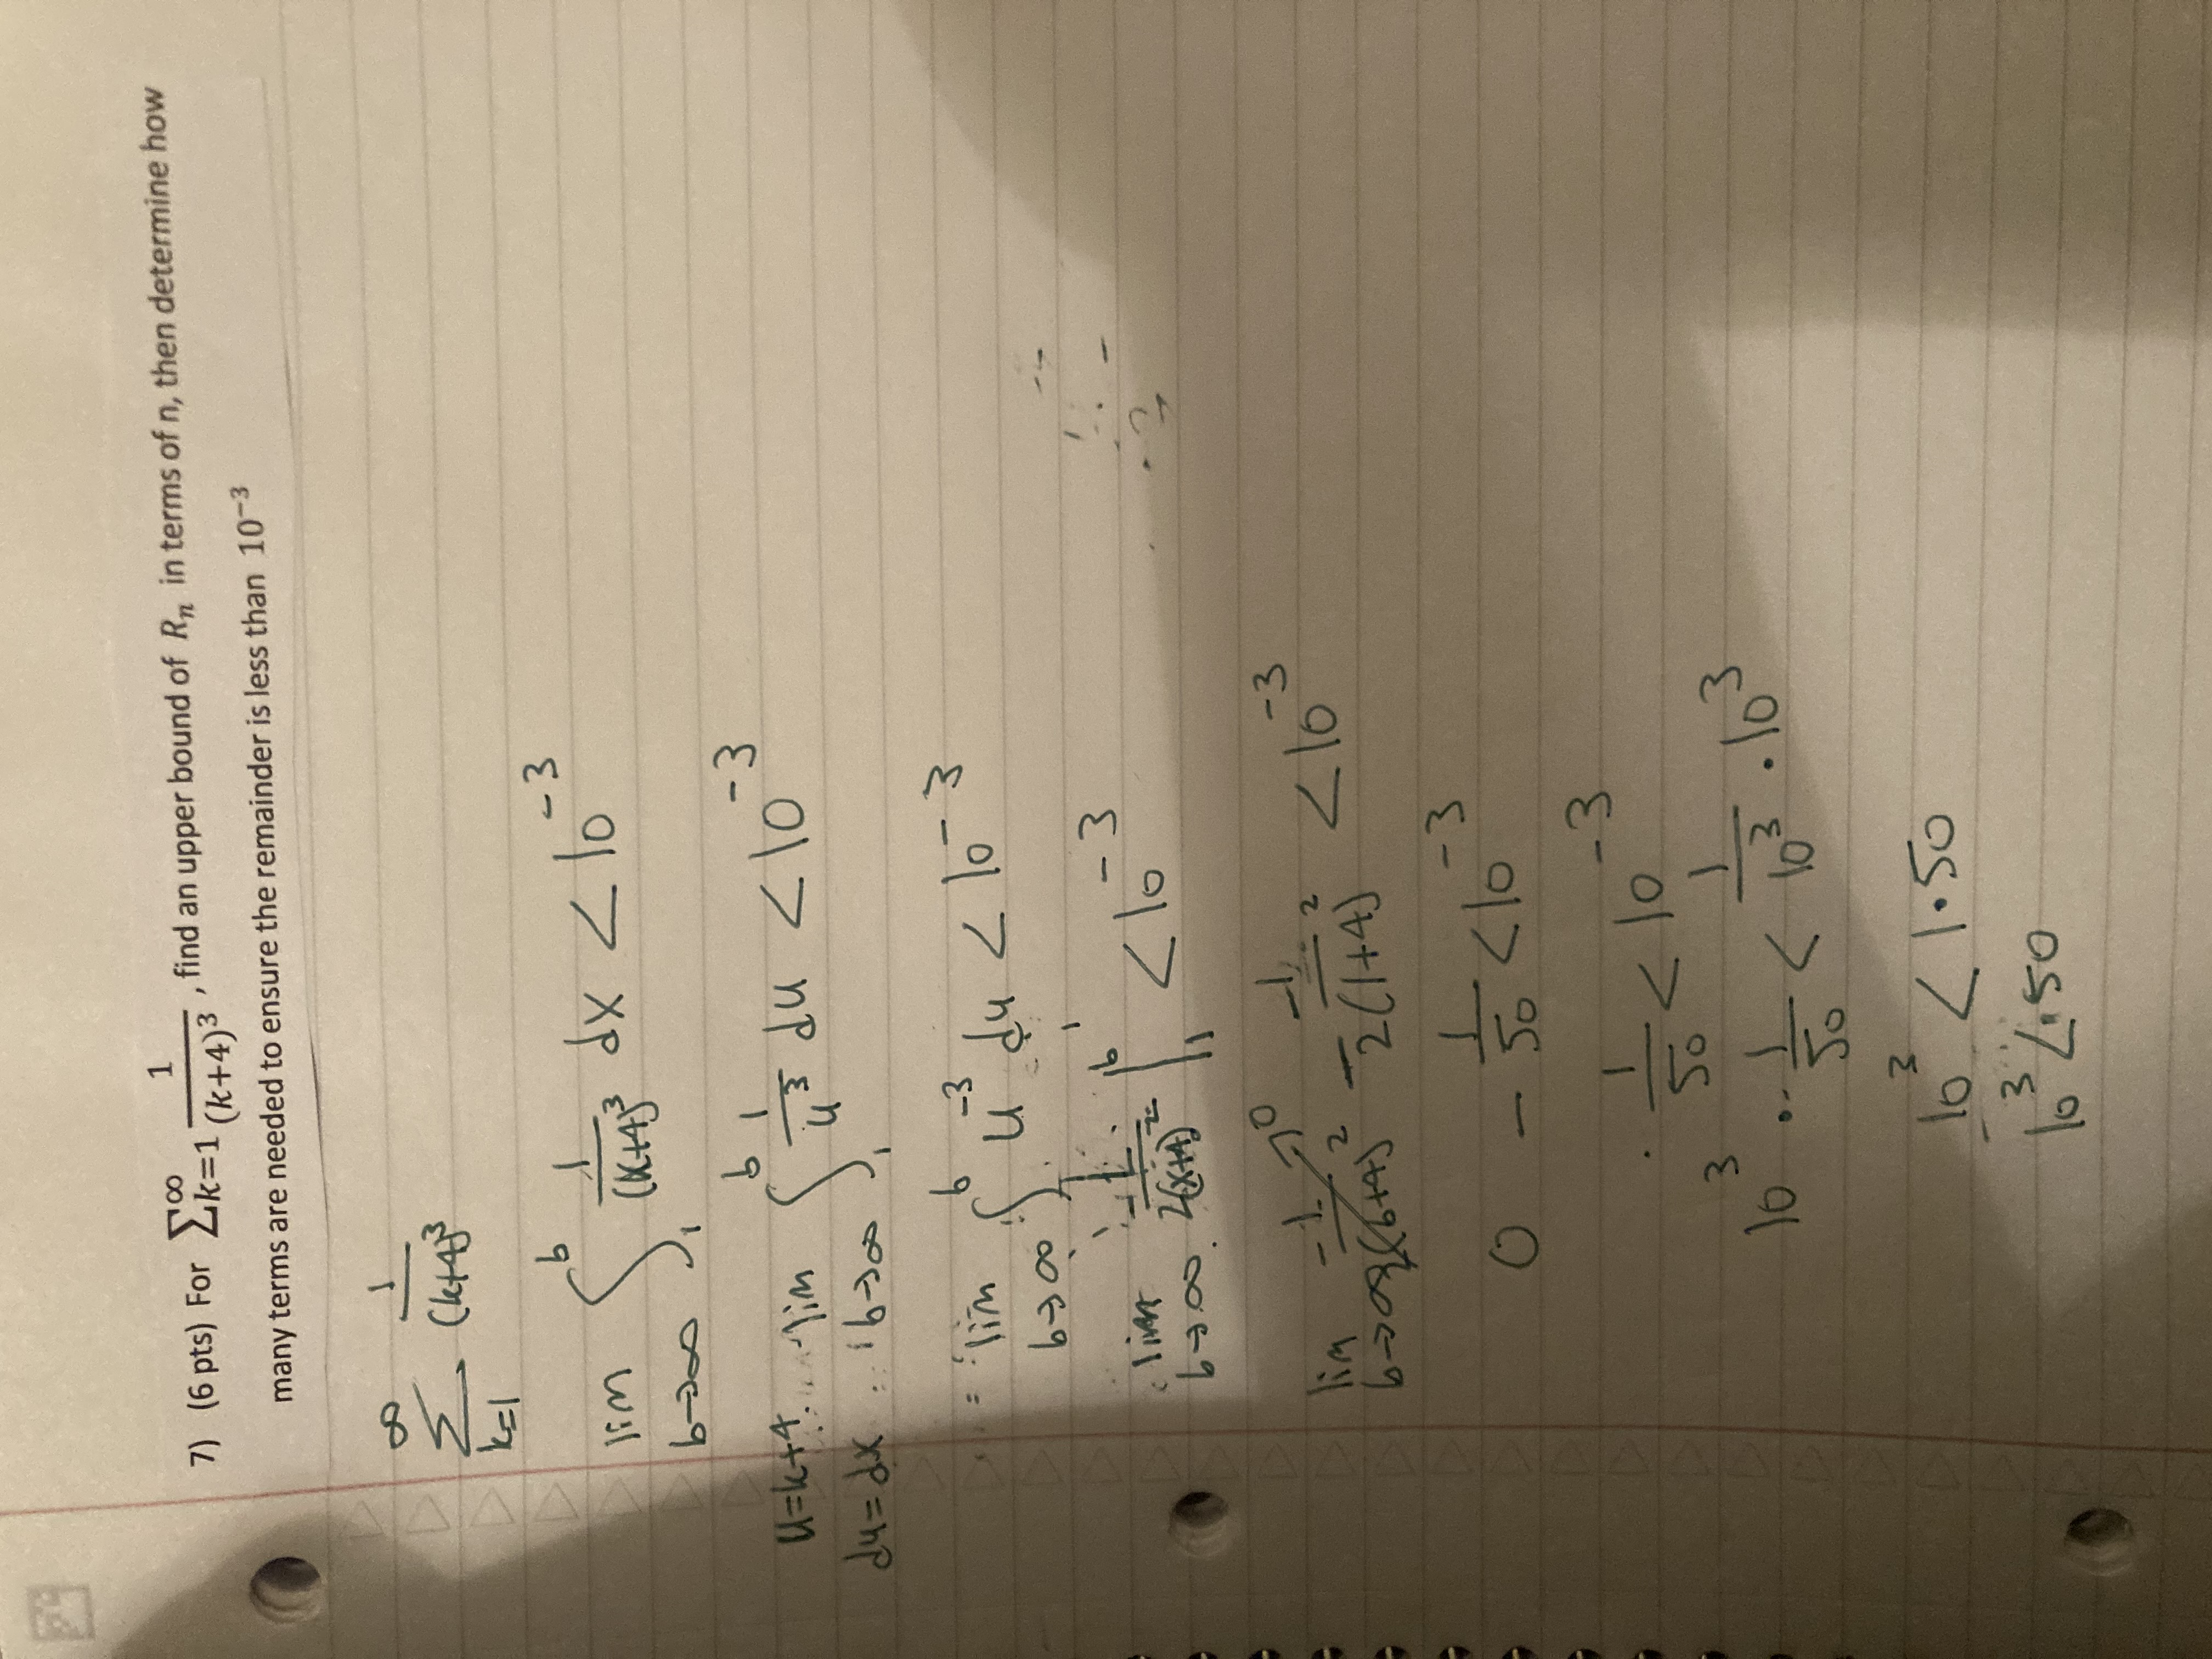 7) (6 pts) For ∑_{k=1}^{∞} 1/(k+4)³ , find an upper bound of Rₙ in terms of n, then determine how
many terms are needed to ensure the remainder is less than 10⁻³
∑_{k=1}^{∞} 1/(k+4)³
lim b→∞ ∫₁^b 1/(x+4)³ dx < 10⁻³
u=k+4 lim b→∞ ∫₁^b 1/u³ du < 10⁻³
du=dx
= lim b→∞ ∫₁^b u⁻³ du < 10⁻³
lim b→∞ -1/2(x+4)² |₁^b < 10⁻³
lim b→∞ -1/2(b+4)² →0 - -1/2(1+4)² < 10⁻³
0 - 1/50 < 10⁻³
1/50 < 10⁻³
10³ · 1/50 < 1/10³ · 10³
10³ < 1·50
10³ < 50